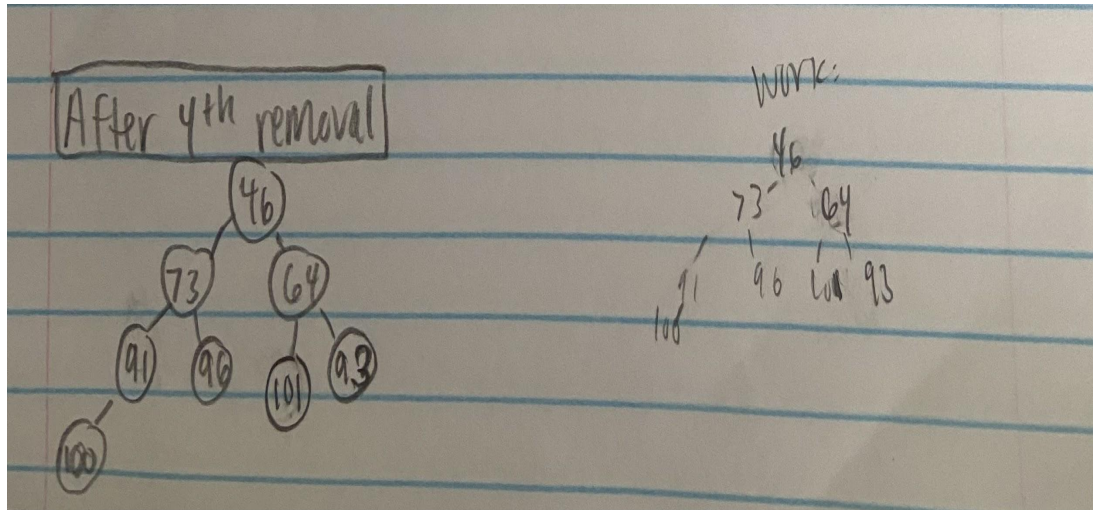 After 4th removal
46
73 64
91 96 101 93
100
Work:
46
73 64
91 96 93
100